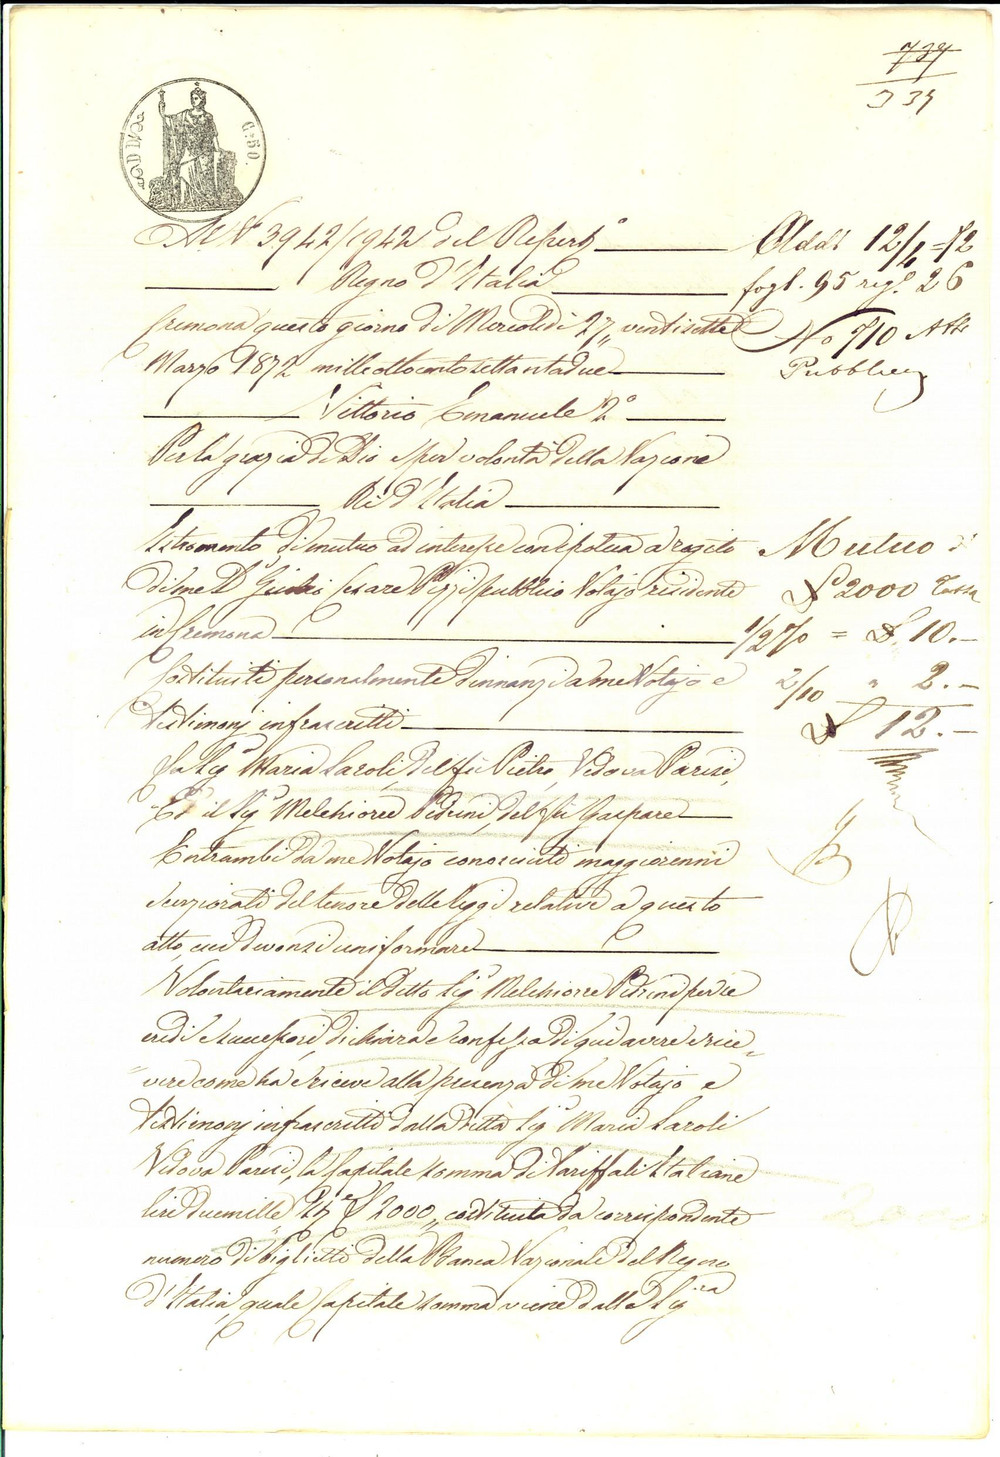 739
339
Al N° 3942/1942 del Repert°
Regno d'Italia
Cremona questo giorno di Mercoledi 27,, ventisette
Marzo 1872 milleottocentosettantadue
Vittorio Emanuele 2°
Per la grazia di Dio e per volontà della Nazione
Re d'Italia
Istromento di mutuo ad interesse con ipoteca a rogito
di me Dr Cesare Pizzi pubblico Notajo residente
in Cremona
Costituiti personalmente dinnanzi a me Notajo e
testimonj infrascritti
La Sigra Maria Saroli del fu Pietro, Vedova Parisi,
Ed il Sigr Melchiorre Pedrini, del fu Gaspare
Entrambi da me Notajo conosciuti maggiorenni
del tenore delle leggi relative a questo
atto, cui devonsi uniformare
Volontariamente il detto Sigr Melchiorre Pedrini per se
eredi e successori, dichiara e confessa di qui avere e rice-
vere come ha e riceve alla presenza di me Notajo e
testimonj infrascritti dalla detta Sigra Maria Saroli
Vedova Parisi, la Capitale somma di Italiane
lire duemille £ 2000,, costituita da corrispondente
numero di biglietti della Banca Nazionale del Regno
d'Italia, quale Capitale somma viene dalla Sigra
Addì 12/4 = 72
fogl. 95 regr 26
No 710 Atti
Pubblici
Mutuo di
£ 2000 Tassa
1/2 % = £. 10.—
2/10 " 2.—
£ 12.—